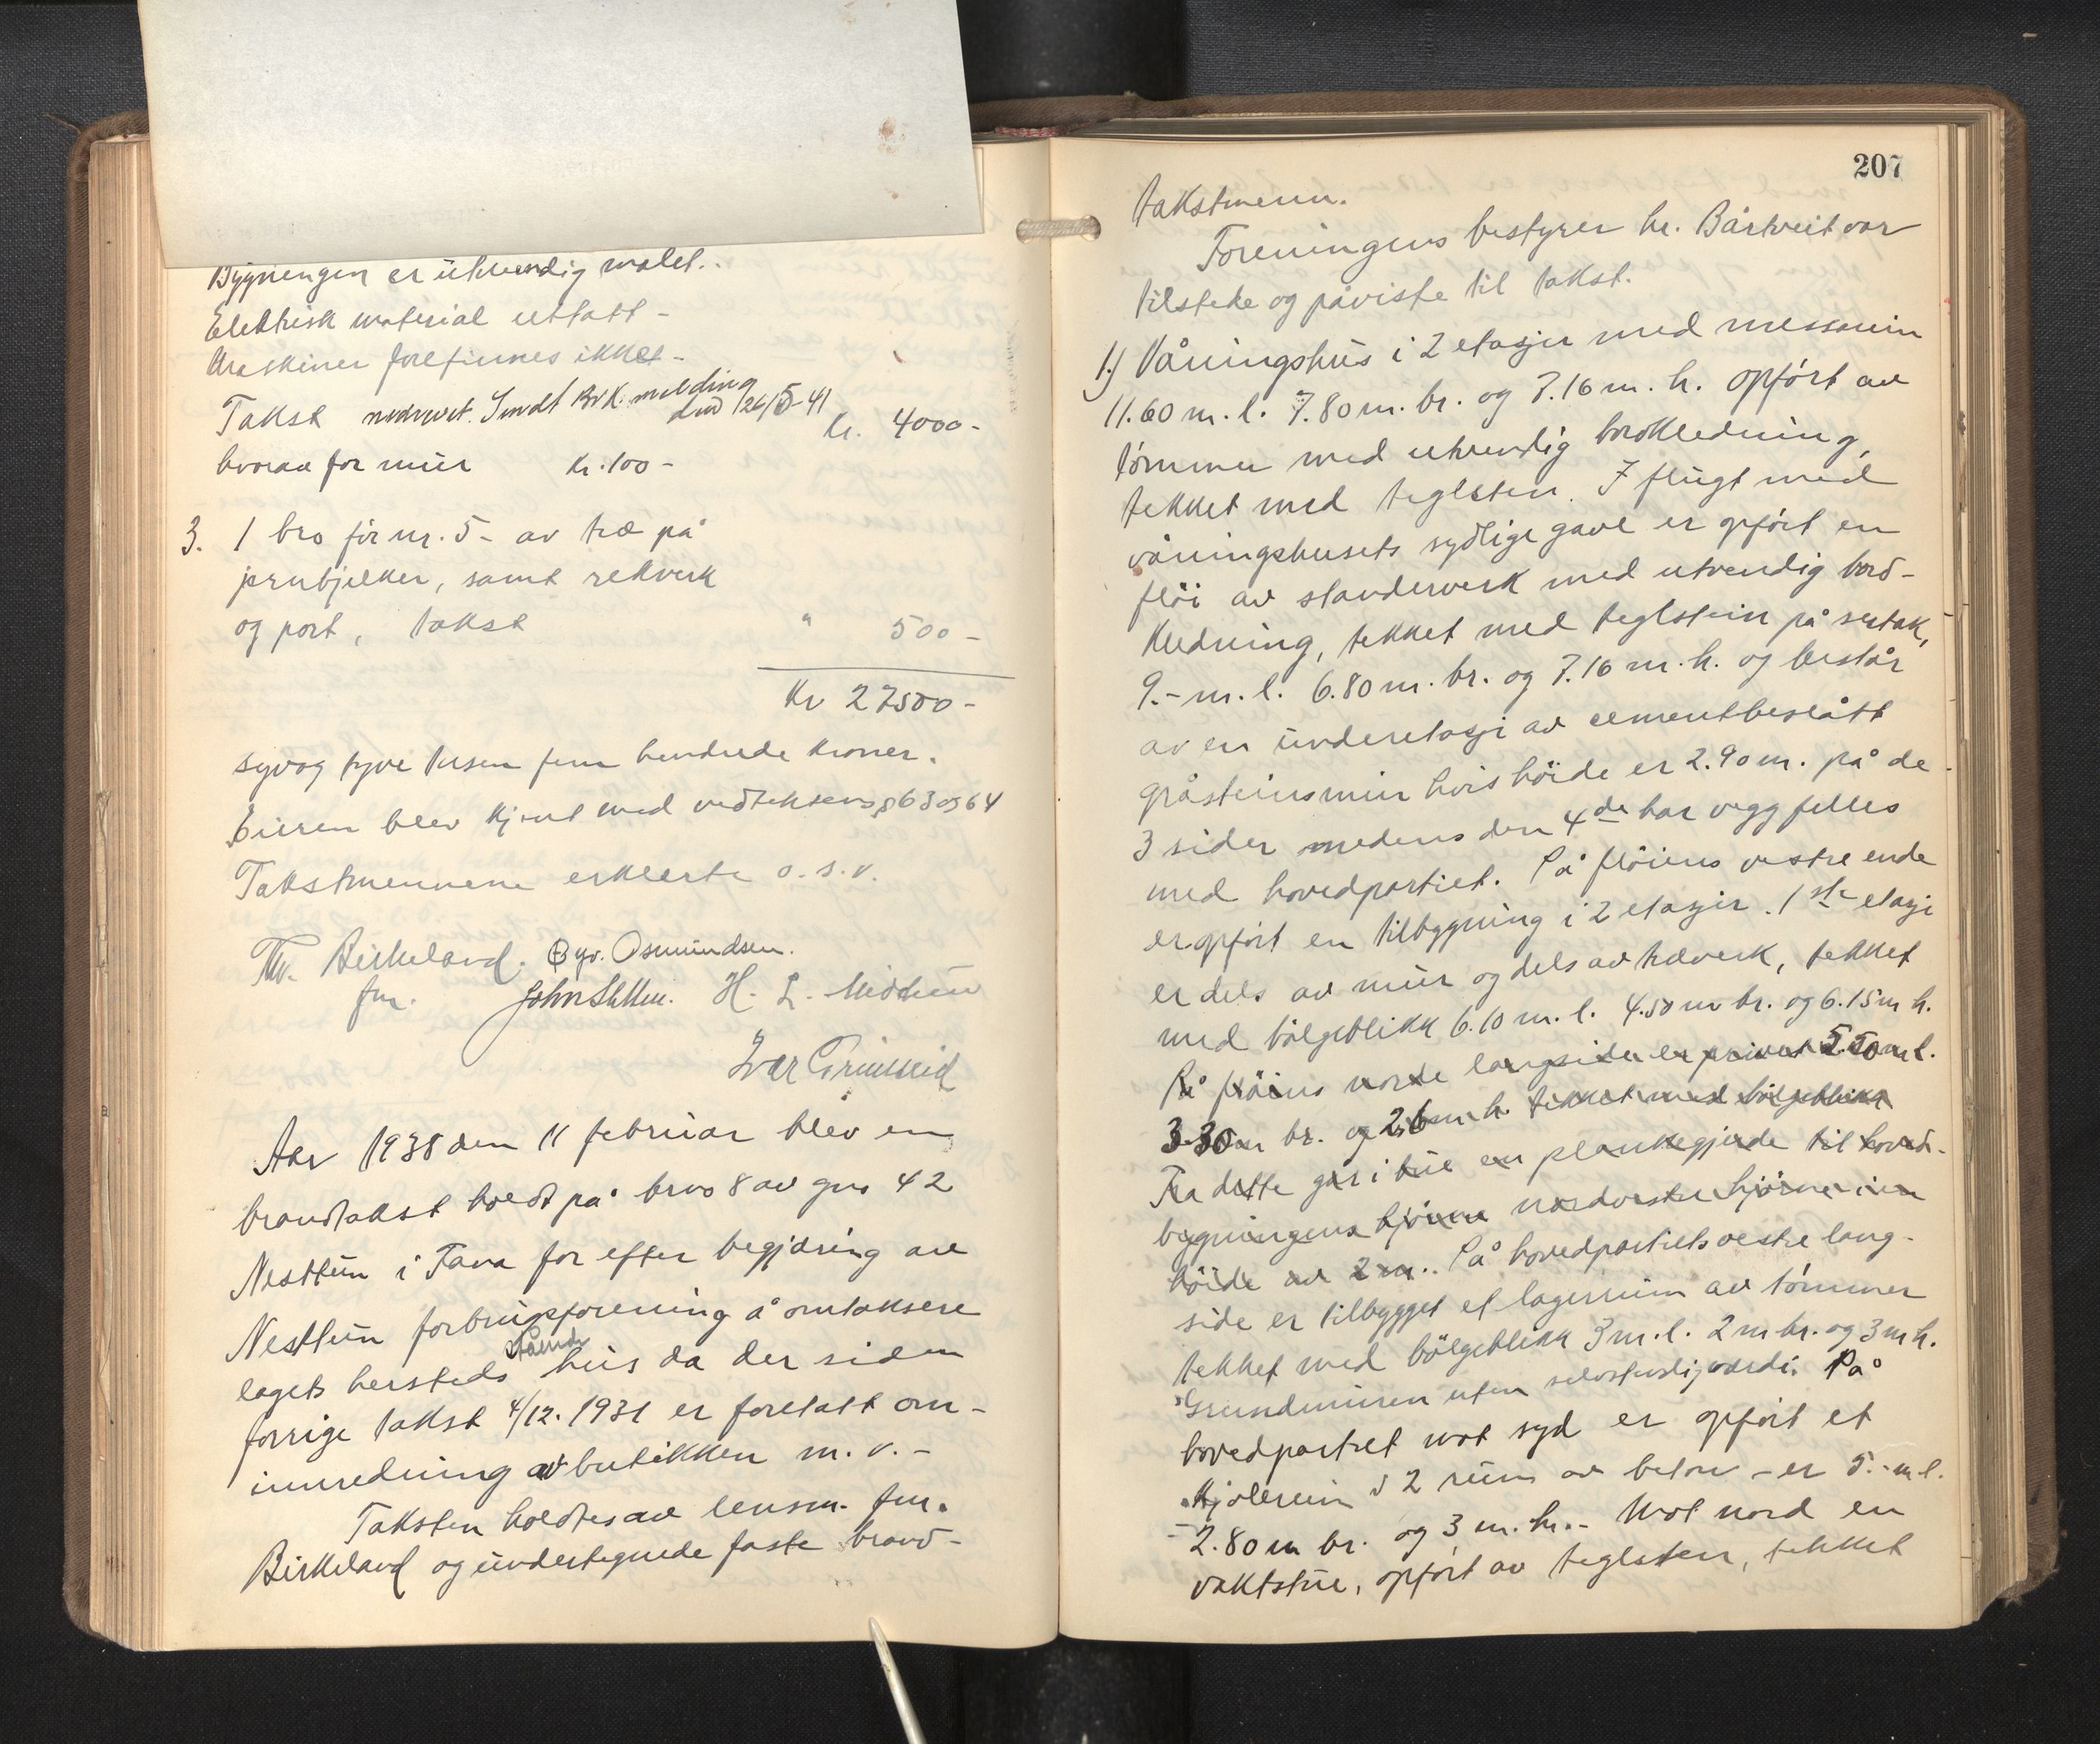 Bygningen er utvendig malet.
Elektrisk material uttatt -
Maskiner forefinnes ikke -
Takst nedrevet. Sendt Br.K. melding
26/5-41
kr. 4000-
hvorav for mur kr. 100-
3. 1 bro för nr. 5- av træ på
jernbjelker, samt rekverk
og port, takst " 500-
Kr 27500-
syv og tyve tusen fem hundrede kroner.
Eieren blev kjent med vedtektenes § 63 og 64
Takstmennene erklerte o.s.v.
Th. Birkeland. Osmundsen.
fm. John H. L. Midttun
Ivar Grimseid
Aar 1938 den 11 februar blev en
brandtakst holdt på brno 8 av gno 42
Nesttun i Fana for efter begjæring av
Nesttun forbruksforening å omtaksere
lagets hersteds stående hus da der siden
forrige takst 4/12. 1931 er foretatt om-
innredning av butikken m.v. -
Taksten holdtes av lensm. fm.
Birkeland og undertegnede faste brand-
207
takstmenn.
Foreningens bestyrer hr. Bårtveit var
tilstede og påviste til takst.
1.) Våningshus i 2 etasjer med messanin
11.60 m. l. 7.80 m. br. og 7.16 m. h. opfört av
tömmer med utvendig bordkledning,
tekket med teglsten. I flugt med
våningshusets sydlige gavl er opfört en
flöi av standerverk med utvendig bord-
kledning, tekket med teglstein på sutak,
9.- m. l. 6.80 m. br. og 7.16 m. h. og består
av en underetasje av cementbeslått
gråsteinsmur hvis höide er 2.90 m. på de
3 sider medens den 4de har vegg felles
med hovedpartiet. På flöiens vestre ende
er opfört en tilbygning i 2 etasjer. 1ste etasje
er dels av mur og dels av træverk, tekket
med bölgeblikk 6.10 m. l. 4.50 m br. og 6.15 m h.
På flöiens nordre langside er privet 5.50 m l.
3.30 m br. og 2.6 m h. tekket med bölgeblikk
Fra dette går i bue en plankegjerde til hoved-
bygningens hjörne nordvestre hjörne i en
höide av 2 m. På hovedpartiets vestre lang-
side er tilbygget et lagerrum av tömmer
tekket med bölgeblikk 3 m. l. 2 m br. og 3 m h.
Grundmuren uten selvstendig værdi. På
hovedpartiet mot syd er opfört et
kjölerum i 2 rum av beton - er 5.- m. l.
- 2.80 m br. og 3 m. h. - Mot nord en
vaktstue, opfört av teglsten, tekket